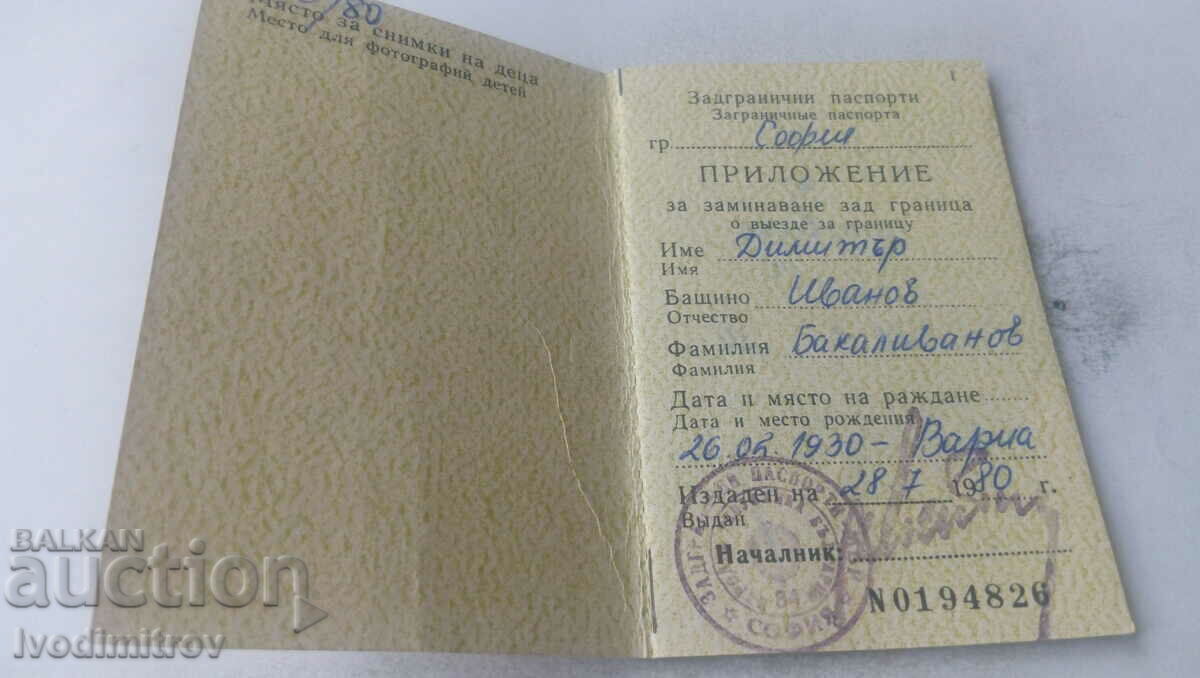 /80
Място за снимки на деца
Место для фотографий детей
1
Задгранични паспорти
Заграничные паспорта
гр. София
ПРИЛОЖЕНИЕ
за заминаване зад граница
о выезде за границу
Име Димитър
Имя
Бащино Иванов
Отчество
Фамилия Бакаливанов
Фамилия
Дата и място на раждане
Дата и место рождения
26 05 1930 - Варна
Издаден на 28 7 1980 г.
Выдан
Началник:
СОФИЯ
N0194826
BALKAN
auction
Ivodimitrov